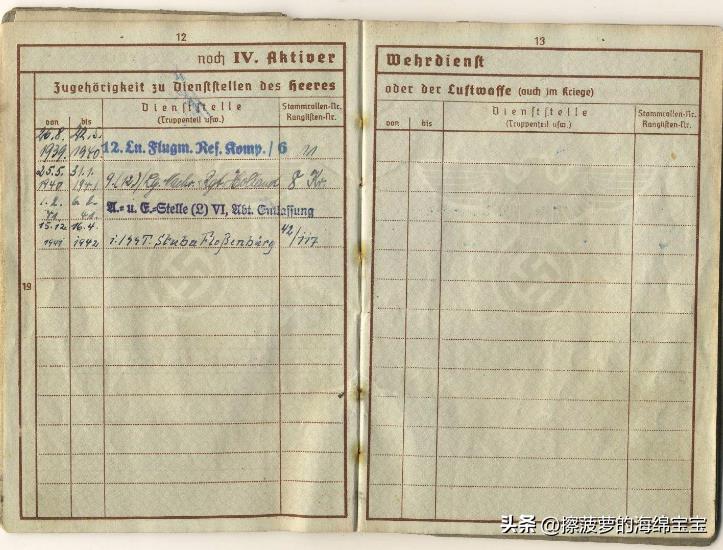 12
noch IV. Aktiver
Zugehörigkeit zu Dienststellen des Heeres
von
bis
Dienststelle
(Truppenteil usw.)
Stammrollen-Nr.
Ranglisten-Nr.
26.8. 22.5.
1939. 1940. 12. Ln. Flugm. Res. Komp. / 6
25.5. 31.1.
1940 1941
Holland
1. 2.
A.- u. E.-Stelle (L) VI, Abt. Entlassung
15.12. 16.4.
1941 1942
Floßenbürg
42/117
19
13
Wehrdienst
oder der Luftwaffe (auch im Kriege)
von
bis
Dienststelle
(Truppenteil usw.)
Stammrollen-Nr.
Ranglisten-Nr.
头条 @擦菠萝的海绵宝宝